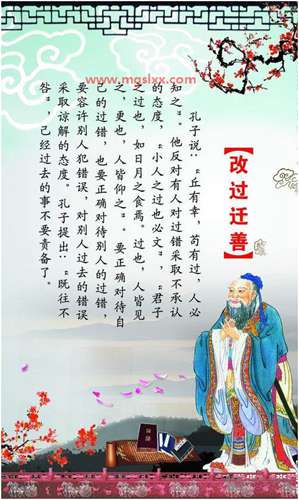 www.mgslxx.com
【改过迁善】
孔子说：“丘有幸，苟有过，人必
知之”。他反对有人对过错采取不承认
的态度，“小人之过也必文”，“君子
之过也，如日月之食焉。过也，人皆见
之，更也，人皆仰之”。要正确对待自
己的过错，也要正确对待别人的过错，
要容许别人犯错误，对别人过去的错误
采取谅解的态度。孔子提出：“既往不
咎”，已经过去的事不要责备了。